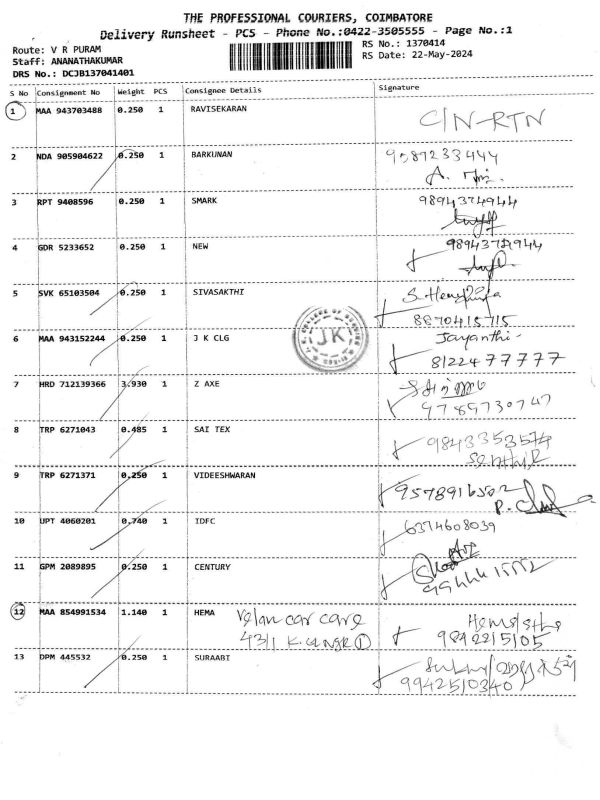 THE PROFESSIONAL COURIERS, COIMBATORE
Delivery Runsheet - PCS - Phone No.:0422-3505555 - Page No.:1
Route: V R PURAM
Staff: ANANATHAKUMAR
DRS No.: DCJB137041401
RS No.: 1370414
RS Date: 22-May-2024
S No Consignment No Weight PCS Consignee Details Signature
1 MAA 943703488 0.250 1 RAVISEKARAN C/N-RTN
2 NDA 905904622 0.250 1 BARKUNAN 9587233444
A.
3 RPT 9408596 0.250 1 SMARK 9894374944
4 GDR 5233652 0.250 1 NEW
5 SVK 65103504 0.250 1 SIVASAKTHI
8870415715
JK
6 MAA 943152244 0.250 1 J K CLG Jayanthi
8122477777
7 HRD 712139366 3.930 1 Z AXE
9789730747
8 TRP 6271043 0.485 1 SAI TEX 9843353574
9 TRP 6271371 0.250 1 VIDEESHWARAN 9578916502
P.
10 UPT 4060201 0.740 1 IDFC 6374608039
11 GPM 2089895 0.250 1 CENTURY
12 MAA 854991534 1.140 1 HEMA Velan car care
9842215105
13 DPM 445532 0.250 1 SURAABI
9942510340